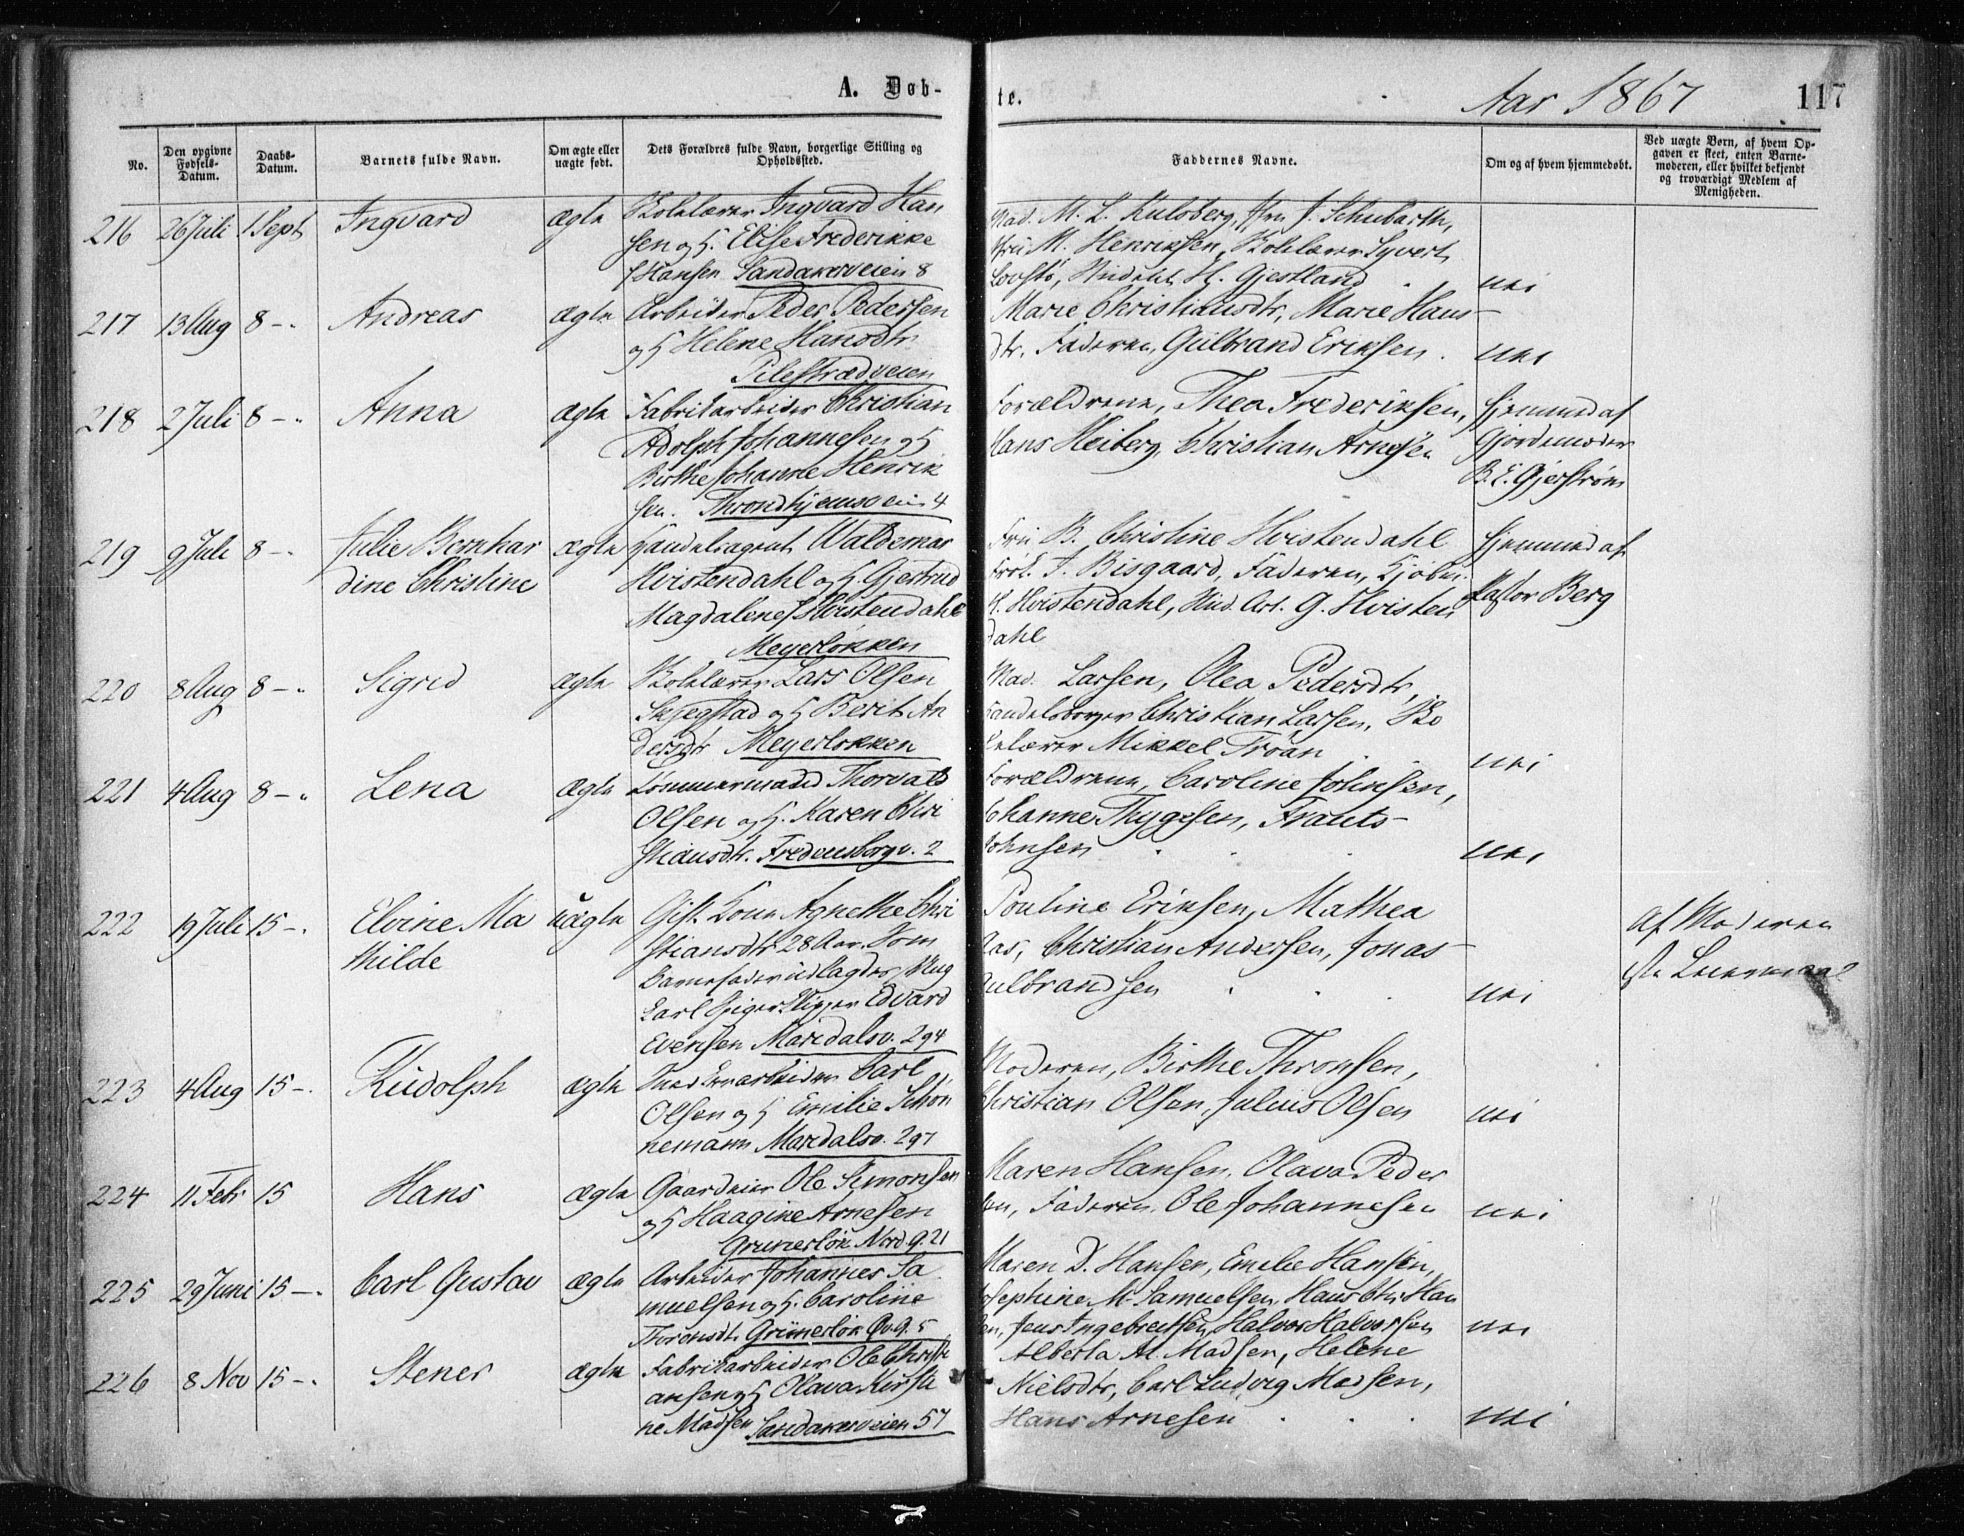 A. Døb-
te.
Aar 1867
117
No.
Den opgivne Fødsels-Datum.
Daabs-Datum.
Barnets fulde Navn.
Om ægte eller uægte født.
Dets Forældres fulde Navn, borgerlige Stilling og Opholdssted.
Faddernes Navne.
Om og af hvem hjemmedøbt.
Ved uægte Børn, af hvem Opgaven er skeet, enten Barnemoderen, eller hvilket bekjendt og troværdigt Medlem af Menigheden.
216 26 Juli 1 Sept Ingvard ægte Skolelærer Ingvard Han
sen og H. Elise Frederikke
f Hansen Sandakerveien 8
Mad. M. L. Kulsberg, Fru J. Schubarth,
Fru M. Henriksen, Skolelærer Syvert
H. Gjestland nei
217 13 Aug 8 -. Andreas ægte Arbeider Peder Pedersen
og H Helene Hansdtr.
Pilestrædveien
Marie Christiansdtr, Marie Hans-
dtr. Faderen, Gulbrand Eriksen. nei
218 2 Juli 8 -. Anna ægte Fabrikarbeider Christian
Adolph Johannesen og H
Birthe Johanne Henrik
sen. Throndhjemsvei 4
Forældrene, Thea Frederiksen,
Hans Heiberg, Christian Arnesen
Hjemmed af
Gjordemoder
B. E. Gjerstrøm
219 9 Juli 8 -. Julie Bernhar
dine Christine ægte Handelsagent Waldemar
Hvistendahl og H Gjertrud
Magdalene f Hvistendahl
Meyerløkken
Fru B. Christine Hvistendahl
Frøk. J. Bisgaard, Faderen, Kjøbm.
K. Hvistendahl, Stud. Art. G. Hvisten
dahl
Hjemmed af
Pastor Berg
220 8 Aug 8 -. Sigrid ægte Skolelærer Lars Olsen
Skjegstad og H Berit An
dersdtr Meyerløkken
Mad. Larsen, Olea Pedersdtr,
Handelsborger Christian Larsen, Sko
lelærer Mikkel Troan nei
221 4 Aug 8 -. Lena ægte Tømmermand Thorvald
Olsen og H. Karen Chri
stiansdtr. Fredensborgv. 2
Forældrene, Caroline Johnsen,
Johanne Thygesen, Frants
Johnsen nei
222 19 Juli 15 -. Elvine Ma
thilde uægte Gift Kone Agnethe Chri
stiansdtr 28 Aar. Som
Barnefader udlagdes Ung
karl Edvard
Evensen Maridalsv. 294
Pouline Eriksen, Mathea
Aas, Christian Andersen, Jonas
Gulbrandsen nei
af Moderen
1ste Leiermaal
223 4 Aug 15 -. Rudolph ægte Carl
Olsen og H Emilie Schön
nemann Maridalsv. 297
Moderen, Birthe Thronsen,
Christian Olsen, Julius Olsen nei
224 11 Febr 15 Hans ægte Gaardeier Ole Simonsen
og H Haagine Arnesen
Grünerløk Nord. g. 21
Maren Hansen, Olava Peder
sen, Faderen, Ole Johannesen nei
225 29 Juni 15 -. Carl Gustav ægte Arbeider Johannes Sa
muelsen og H. Caroline
Thronsdt. Grünerløk Øv. g. 5
Maren D. Hansen, Emelie Hansen,
Josephine M. Samuelsen, Hans Chr. Han
sen, Jens Ingebretsen, Halvor Halvorsen nei
226 8 Nov 15 -. Stener ægte Fabrikarbeider Ole Christi
ansen og H Olava Kirsti
ne Madsen Sandakerveien 57
Alberta M. Madsen, Helene
Nielsdtr, Carl Ludvig Madsen,
Hans Arnesen nei
7